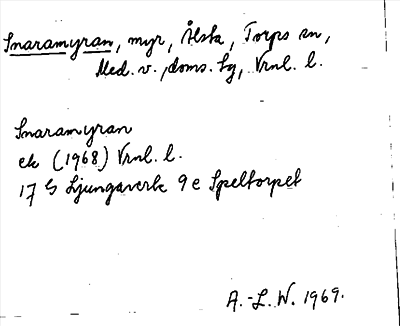 Snaramyran, myr, Ålsta, Torps sn,
Med. v., doms. lg, Vrnl. l.
Snaramyran
ek (1968) Vrnl. l.
17 G Ljungaverk 9 e Speltorpet
A.-L. W. 1969.